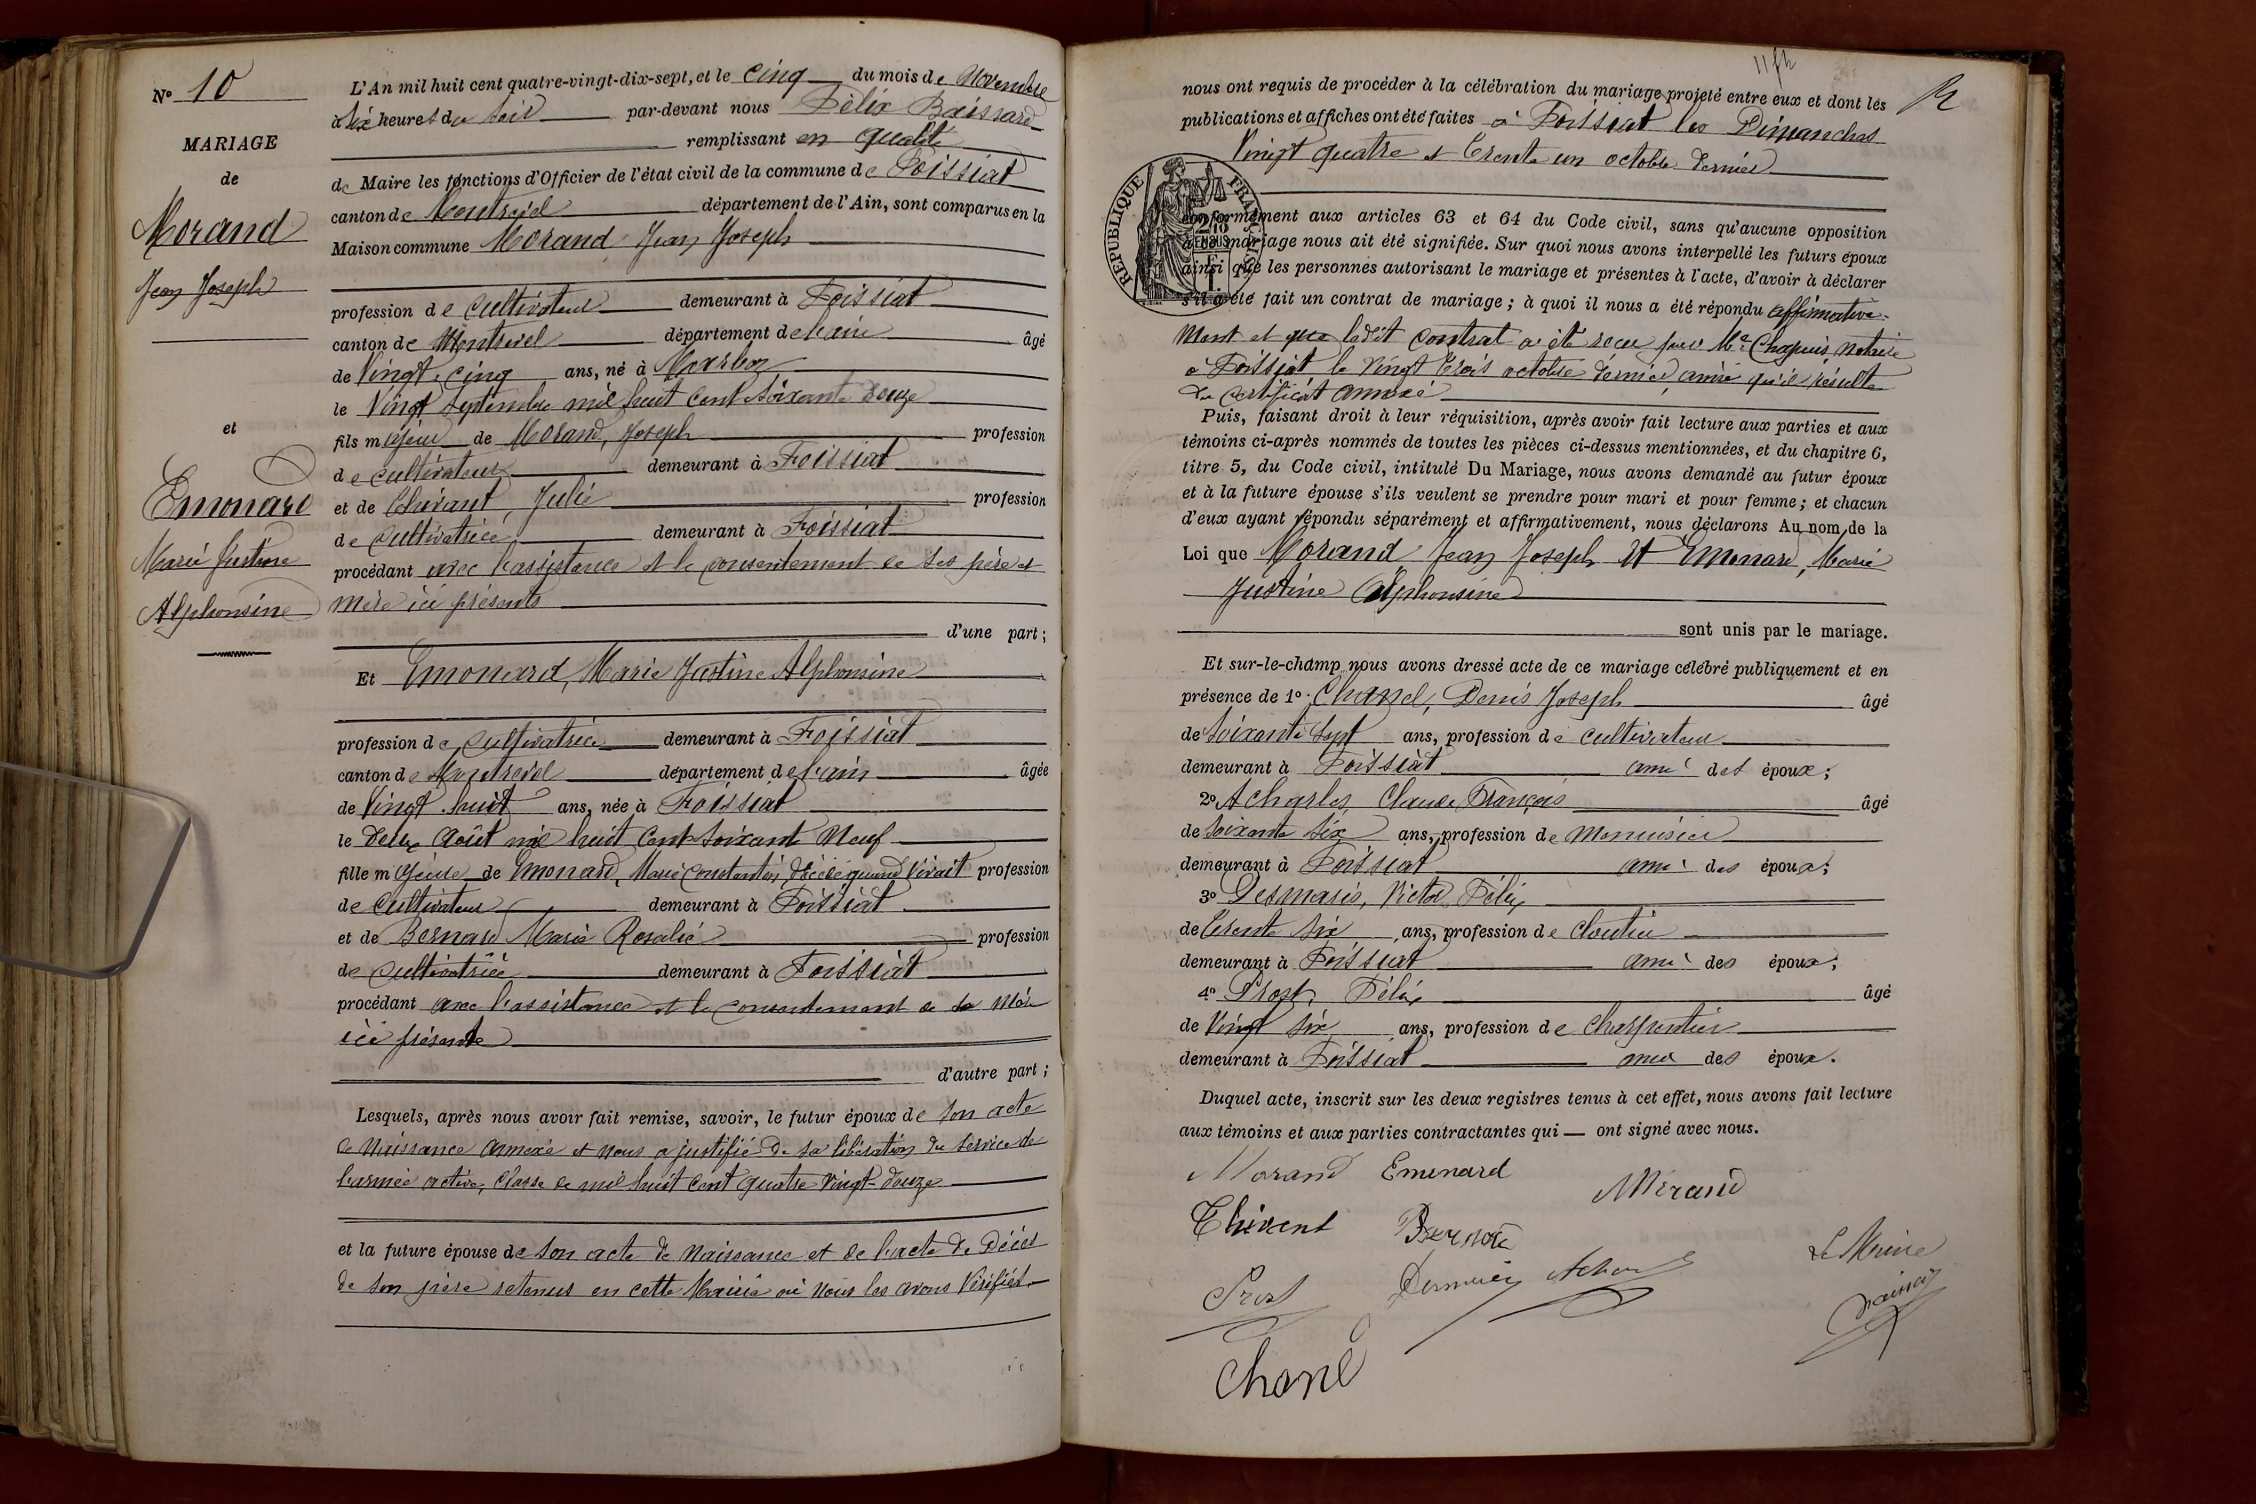 No 10
MARIAGE
de
Morand
Jean Joseph
et
Emonard
Marie Justine
Alphonsine
L'An mil huit cent quatre-vingt-dix-sept, et le cinq du mois de Novembre
à six heures du soir par-devant nous Félix Boissard
remplissant en qualité
de Maire les fonctions d'Officier de l'état civil de la commune de Foissiat
canton de Montrevel département de l'Ain, sont comparus en la
Maison commune Morand, Jean Joseph
profession de cultivateur demeurant à Foissiat
canton de Montrevel département de l'ain âgé
de Vingt cinq ans, né à Marboz
le Vingt Septembre mil huit cent Soixante Douze
fils majeur de Morand, Joseph profession
de cultivateur demeurant à Foissiat
et de Thivent, Julie profession
de cultivatrice demeurant à Foissiat
procédant avec l'assistance et le consentement de ses père et
mère ici présents
d'une part;
Et Emonard, Marie Justine Alphonsine
profession de cultivatrice demeurant à Foissiat
canton de Montrevel département de l'ain âgée
de Vingt huit ans, née à Foissiat
le Deux Août mil huit Cent Soixant Neuf
fille majeure de Emonard, Marie Constantin, Décédé quand Vivait profession
de Cultivateur demeurant à Foissiat
et de Bernard Marie Rosalie profession
de cultivatrice demeurant à Foissiat
procédant avec l'assistance et le consentement de sa Mère
ici présente
d'autre part;
Lesquels, après nous avoir fait remise, savoir, le futur époux de son acte
de Naissance annexé et nous a justifié de sa libération du Service de
l'armée active, Classe de mil huit cent quatre Vingt-Douze
et la future épouse de son acte de Naissance et de l'acte de Décès
de son père retenus en cette Mairie où Nous les avons Vérifiés
nous ont requis de procéder à la célébration du mariage projeté entre eux et dont les
publications et affiches ont été faites à Foissiat les Dimanches
Vingt quatre et Trente un octobre dernier
RÉPUBLIQUE FRANÇAISE
conformément aux articles 63 et 64 du Code civil, sans qu'aucune opposition
à ce mariage nous ait été signifiée. Sur quoi nous avons interpellé les futurs époux
ainsi que les personnes autorisant le mariage et présentes à l'acte, d'avoir à déclarer
s'il a été fait un contrat de mariage; à quoi il nous a été répondu affirmative-
ment et que ledit Contrat a été reçu par Me Chapuis, notaire
à Foissiat le Vingt Trois octobre dernier, ainsi qu'il résulte
du certificat annexé
Puis, faisant droit à leur réquisition, après avoir fait lecture aux parties et aux
témoins ci-après nommés de toutes les pièces ci-dessus mentionnées, et du chapitre 6,
titre 5, du Code civil, intitulé Du Mariage, nous avons demandé au futur époux
et à la future épouse s'ils veulent se prendre pour mari et pour femme; et chacun
d'eux ayant répondu séparément et affirmativement, nous déclarons Au nom de la
Loi que Morand, Jean Joseph Et Emonard, Marie
Justine Alphonsine
sont unis par le mariage.
Et sur-le-champ nous avons dressé acte de ce mariage célébré publiquement et en
présence de 1o Chanel, Denis Joseph âgé
de Soixante Sept ans, profession de cultivateur
demeurant à Foissiat ami des époux;
2o Acharles, Claude François âgé
de Soixante Six ans, profession de Menuisier
demeurant à Foissiat ami des époux;
3o Desmaris, Victor Félix
de Trente Six ans, profession de cloutier
demeurant à Foissiat ami des époux;
4o Prost, Félix âgé
de Vingt six ans, profession de Charpentier
demeurant à Foissiat ami des époux.
Duquel acte, inscrit sur les deux registres tenus à cet effet, nous avons fait lecture
aux témoins et aux parties contractantes qui — ont signé avec nous.
Morand Emonard Morand
Thivent Bernard
Le Maire
Prost
Chanel